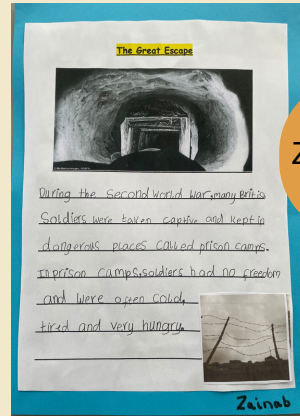 The Great Escape
During the Second World War, many Britis
Soldiers were taken captive and kept in
dangerous places called prison camps.
In prison camps, soldiers had no freedom
and were often cold,
tired and very hungry.
Zainab
Z